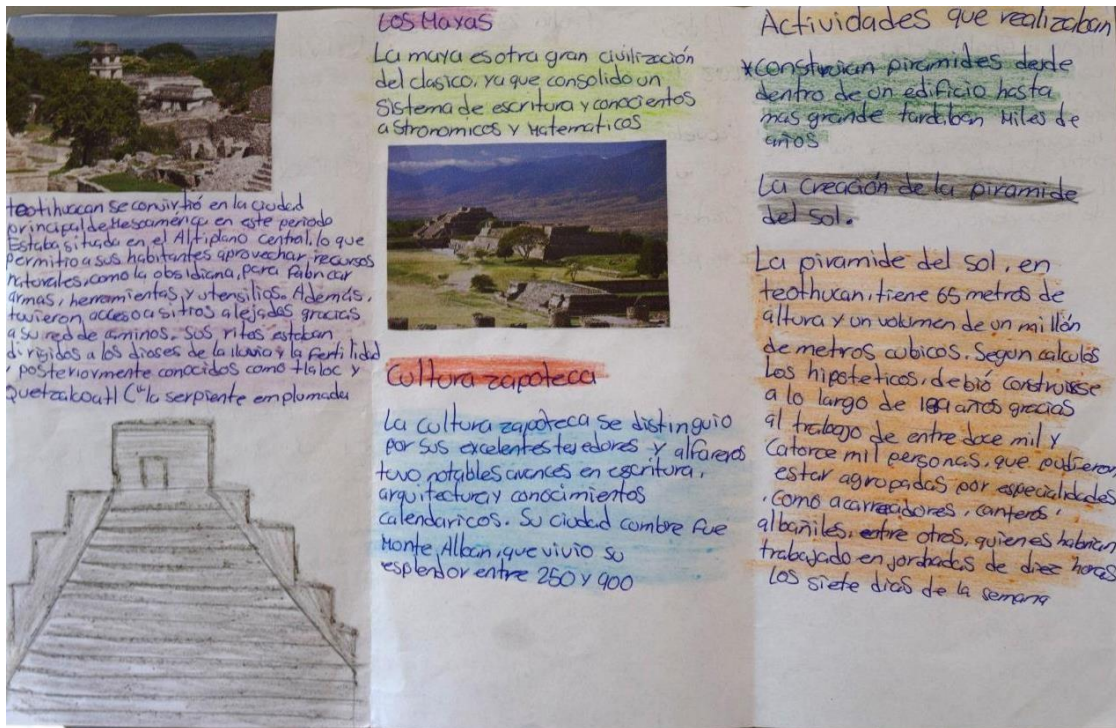 teotihuacan se convirtió en la ciudad
principal de Mesoamérica en este periodo
Estaba situada en el Altiplano central, lo que
permitio a sus habitantes aprovechar recursos
naturales, como la obsidiana, para fabricar
armas, herramientas, y utensilios. Además,
tuvieron acceso a sitios alejados gracias
a su red de caminos. Sus ritos estaban
dirigidos a los dioses de la lluvia y la fertilidad
, posteriormente conocidos como tlaloc y
Quetzalcoatl ("la serpiente emplumada
Los Mayas
La maya es otra gran civilización
del clasico, ya que consolido un
Sistema de escritura y conocientos
astronomicos y Matematicos
Cultura zapoteca
La cultura zapoteca se distinguio
por sus excelentes tejedores y alfareros
tuvo notables avances en escritura,
arquitectura y conocimientos
calendaricos. Su ciudad cumbre fue
Monte, Alban, que vivio su
esplendor entre 250 y 900
Actividades que realizaban
*Construian piramides desde
dentro de un edificio hasta
mas grande tardaban Miles de
años
La Creación de la piramide
del sol.
La piramide del sol, en
teothucan, tiene 65 metros de
altura y un volumen de un millón
de metros cubicos. Segun calculos
Los hipoteticos, debió construirse
a lo largo de años gracias
al trabajo de entre doce mil y
Catorce mil personas, que pudieron
estar agrupadas por especialidades
, como acarreadores, canteros,
albañiles, entre otros, quienes habrian
trabajado en jornadas de diez horas
Los siete dias de la semana